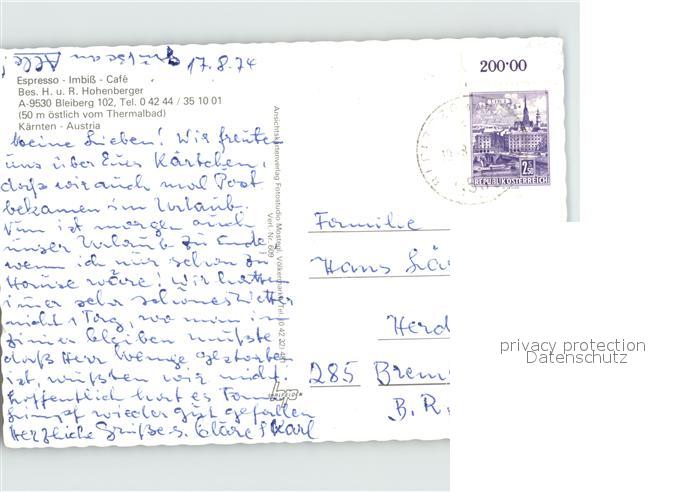 Gruss an Alle!
17.8.74
Espresso - Imbiß - Café
Bes. H. u. R. Hohenberger
A-9530 Bleiberg 102, Tel. 0 42 44 / 35 10 01
(50 m östlich vom Thermalbad)
Kärnten - Austria
Meine Lieben! Wir freuten
uns über Eure Kärtchen,
daß wir auch mal Post
bekamen im Urlaub.
Nun ist morgen auch
unser Urlaub zu Ende,
wenn ich nur schon zu
Hause wäre! Wir hatten
immer sehr schönes Wetter
nicht 1 Tag, wo man im
Zimmer bleiben mußte
daß Herr Wenige gestorben
ist, wußten wir nicht.
Hoffentlich hat es
wieder gut gefallen
Herzliche Grüße s. Cläre & Karl
Ansichtskartenverlag Fotostudio
Verl. Nr. 609
200·00
2,50
REPUBLIK ÖSTERREICH
Familie
Hans
Herd
285 Brem
B.R.
privacy protection
Datenschutz